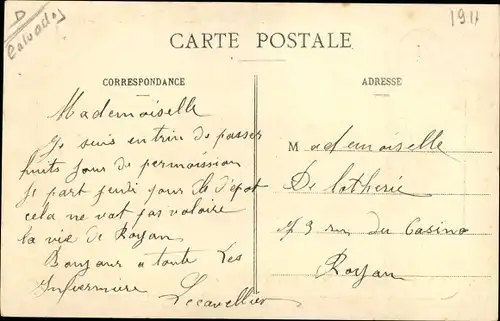 D
Calvados
1911
CARTE POSTALE
CORRESPONDANCE
ADRESSE
Mademoiselle
Je suis entrin de passer
huits jour de permoission
Je part jeudi pour le d'épot
cela ne vat pas valoire
la vie de Royan
Bonjour a toute les
Infirmiere
Lecavellier
Mademoiselle
De lotherie
73 rue du Casino
Royan